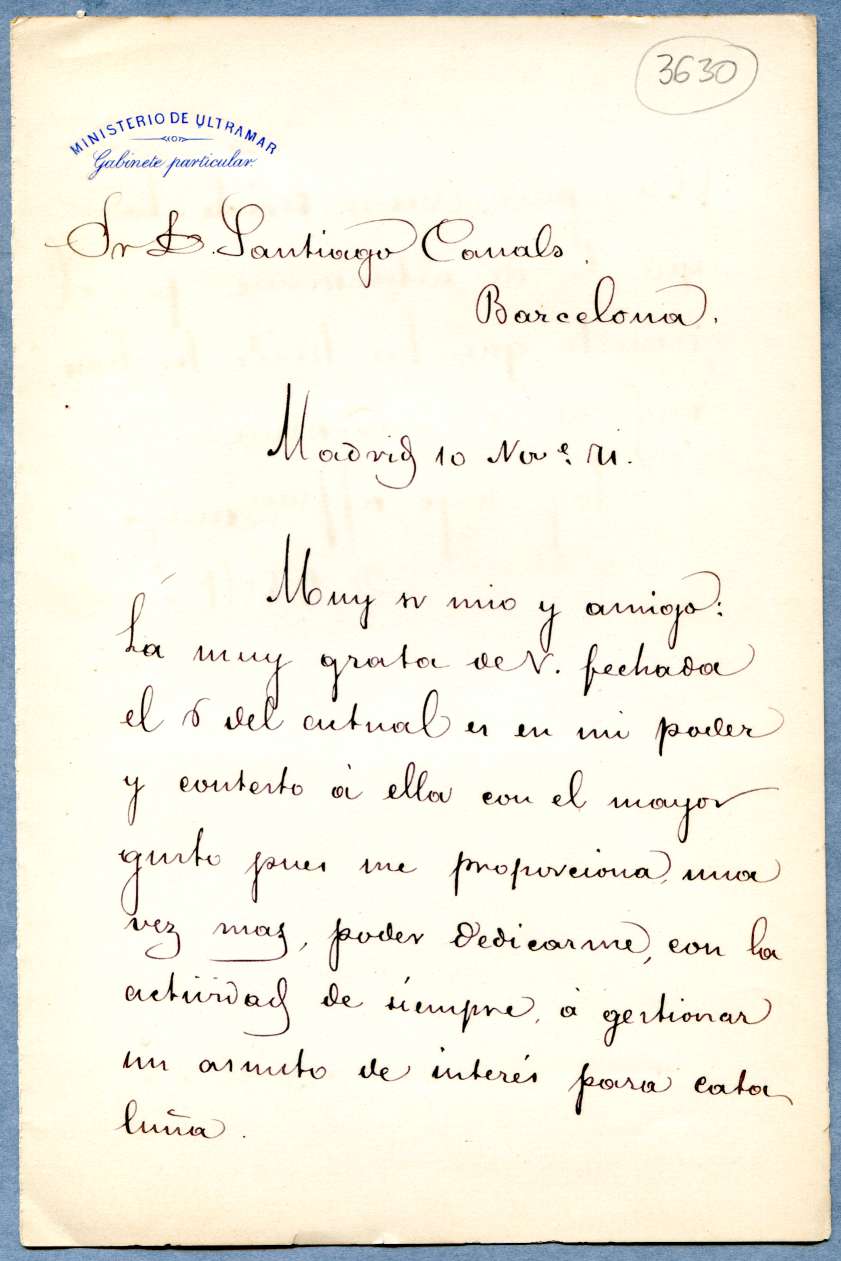 3630
MINISTERIO DE ULTRAMAR
Gabinete particular.
Sr D. Santiago Canals.
Barcelona.
Madrid 10 Nov.e 71.
Muy sr mio y amigo:
La muy grata de V. fechada
el 6 del actual es en mi poder
y contesto á ella con el mayor
gusto pues me proporciona, una
vez mas, poder dedicarme, con la
actividad de siempre, á gestionar
un asunto de interés para cata
luña.